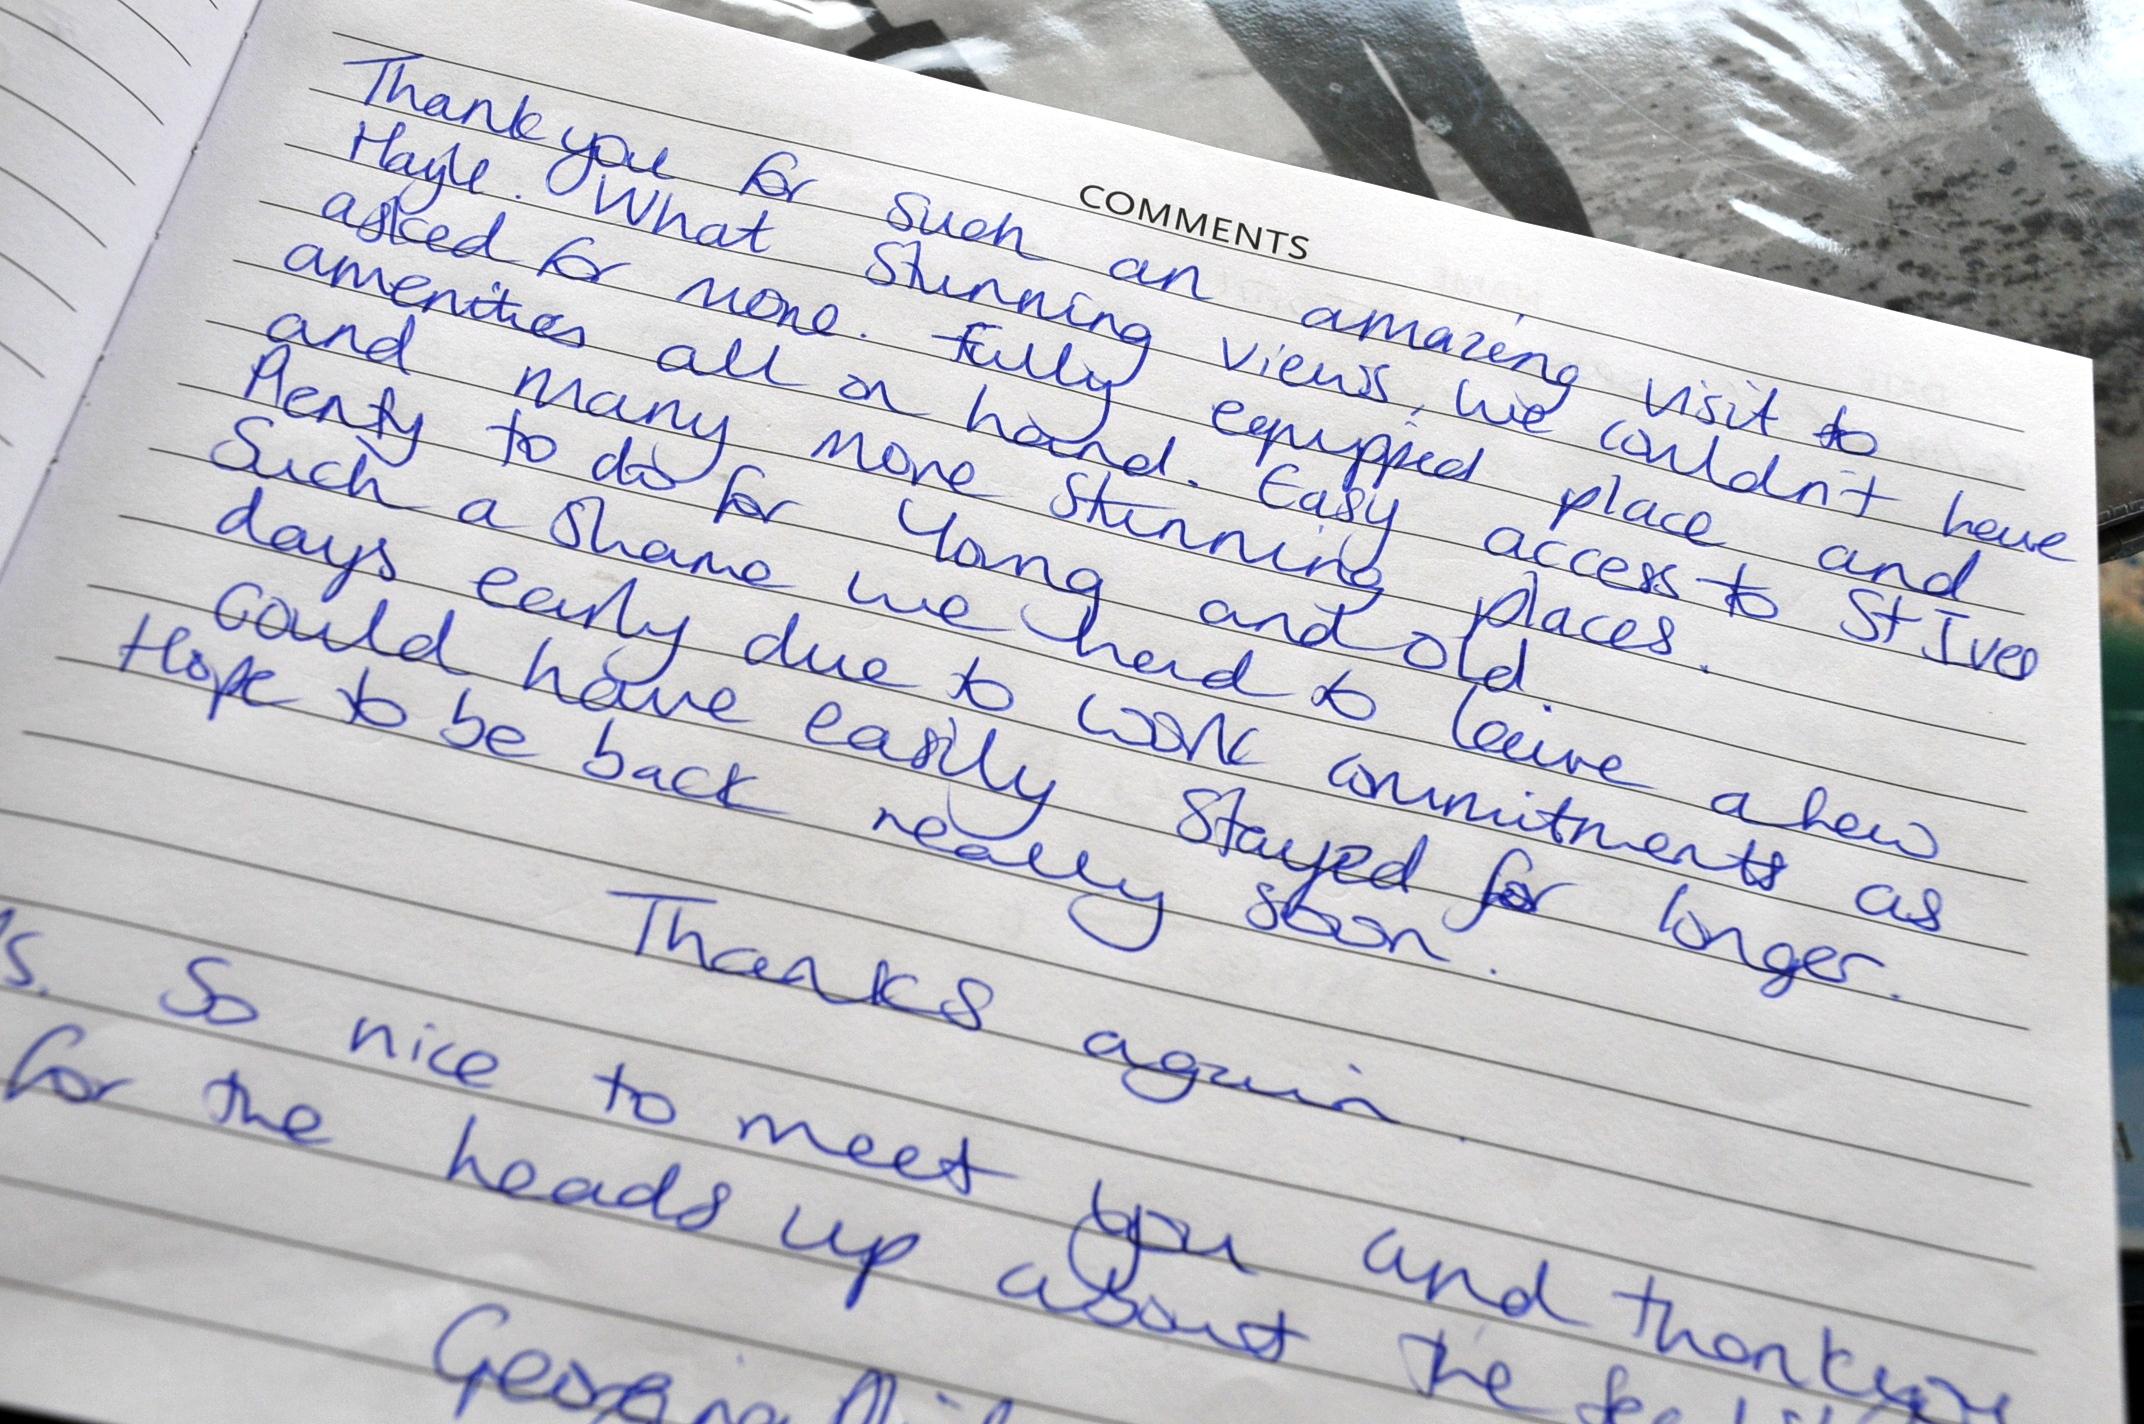 COMMENTS
Thank you for such an amazing visit to
Hayle. What stunning views, we couldn't have
asked for more. Fully equipped place and
amenities all on hand. Easy access to St Ives
and many more stunning places.
Plenty to do for Young and old
Such a shame we had to leave a few
days early due to work commitments as
could have easily stayed for longer.
Hope to be back really soon.
Thanks again.
s. So nice to meet you and thankyou
for the heads up about the
Georgina